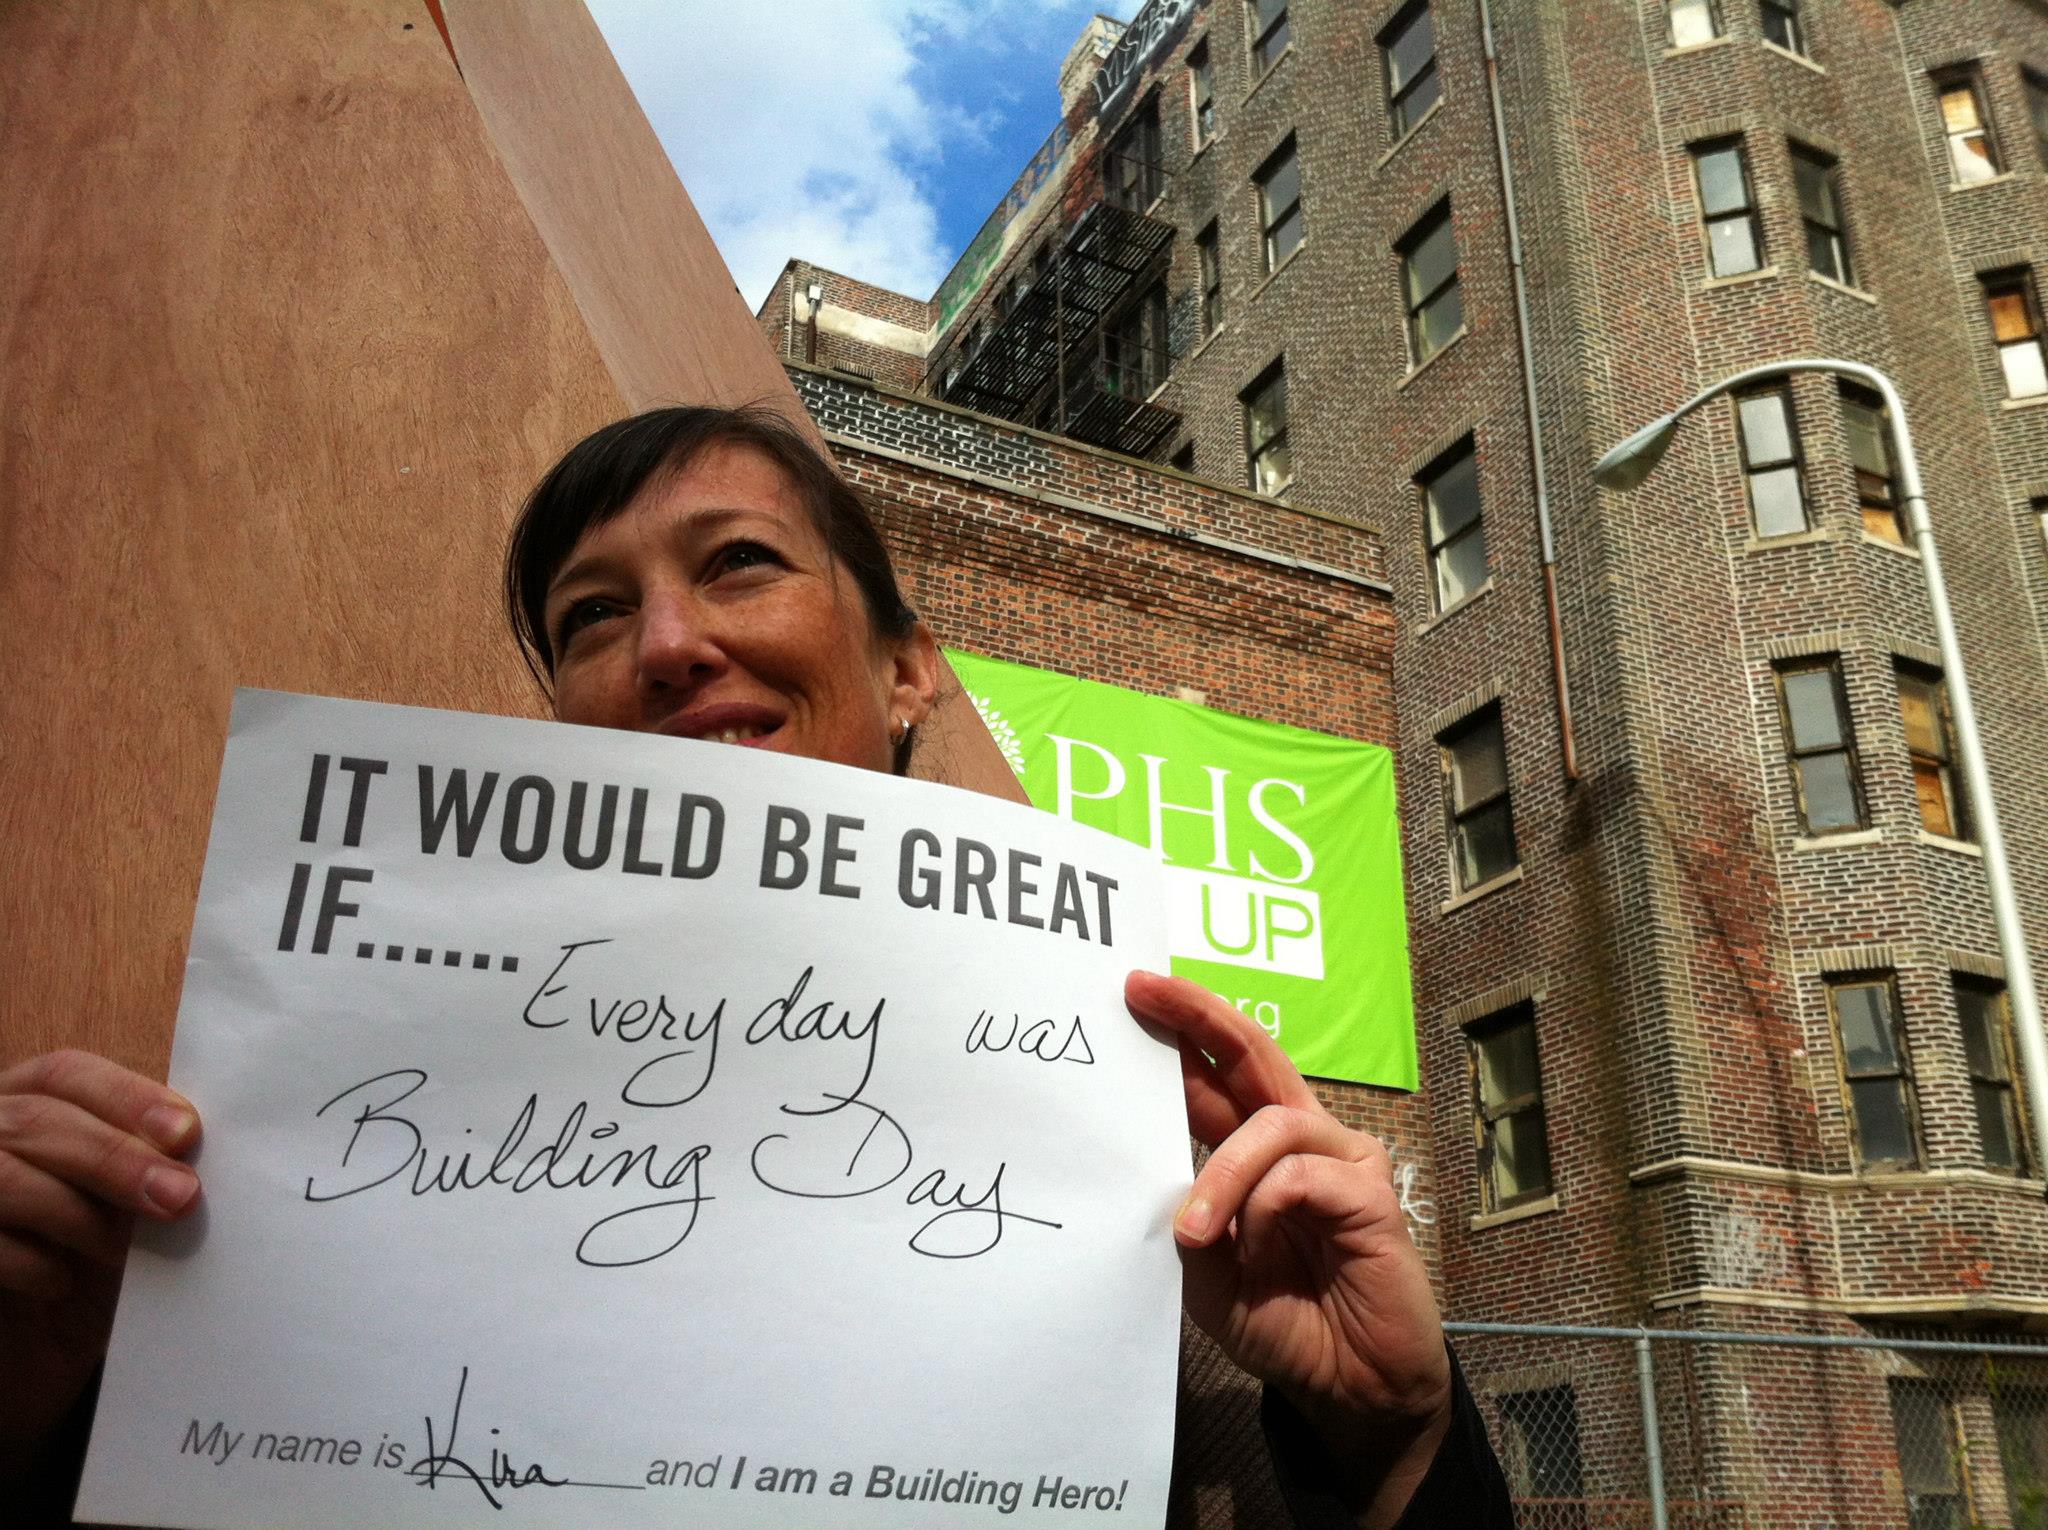 IT WOULD BE GREAT
IF...... Every day was
Building Day
My name is Kira and I am a Building Hero!
PHS
UP
org